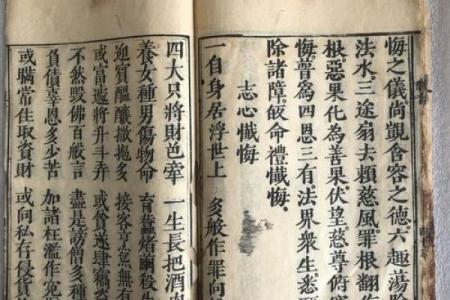 悔之儀尚覬含容之德。六趣蕩
法水。三途扇去賴慈風罪根翻
根惡果化為善果伏望慈尊俯
悔。普為四恩三有法界衆生。悉
除諸障。皈命禮懺悔。
志心懺悔
一自身居浮世上 多般作罪向
四大只將財色牽 一生長把酒
養女種男傷物命 育蠶 繭殺
迎賓醞釀撒拋多 接客烹 無有
或富遂將升斗弄 或貧遂肆竊
不然毀佛百般言 盡是謗僧多種
負債辜恩多少苦 加諸枉濫作冤
或瞞常住取資財 或向私存侵貨